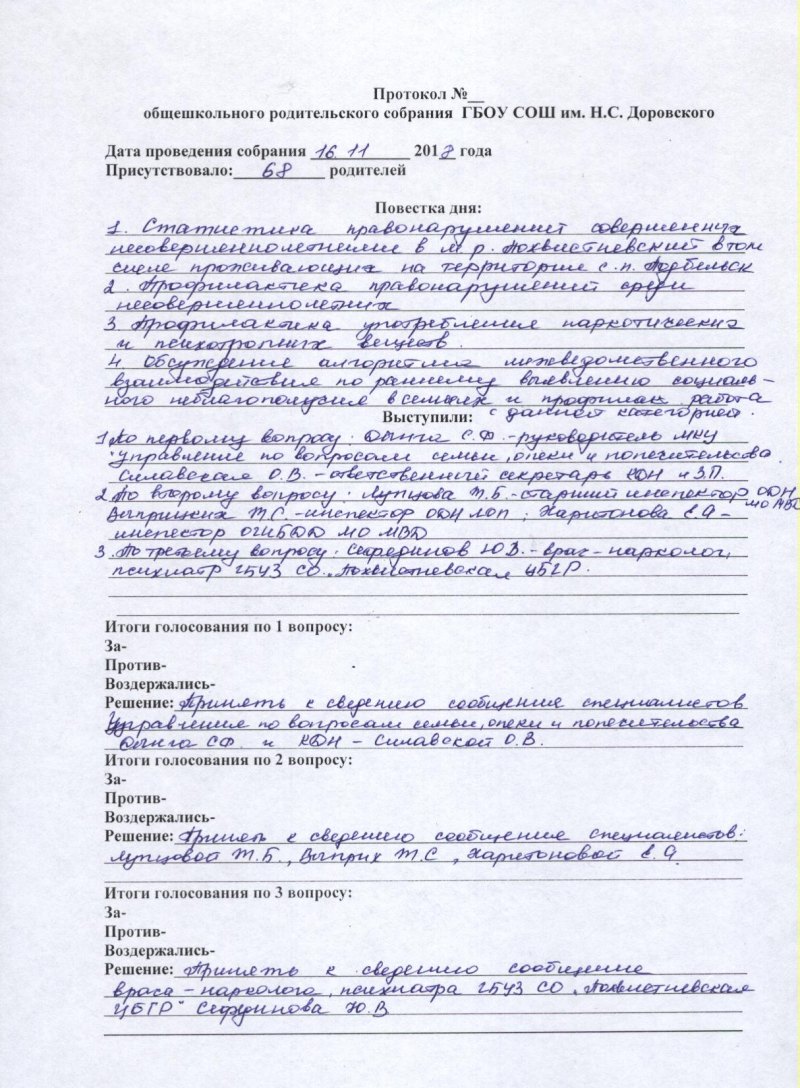 Протокол №__
общешкольного родительского собрания ГБОУ СОШ им. Н.С. Доровского
Дата проведения собрания 16.11 2018 года
Присутствовало: 68 родителей
Повестка дня:
1. Статистика правонарушений совершенных
несовершеннолетними в м.р. Похвистневский в том
числе проживающих на территории с.п. Подбельск
2. Профилактика правонарушений среди
несовершеннолетних
3. Профилактика употребления наркотических
и психотропных веществ.
4. Обсуждение алгоритма межведомственного
взаимодействия по раннему выявлению социаль-
ного неблагополучия в семьях и профилак. работа
с данной категорией.
Выступили:
1. По первому вопросу: С.Ф. - руководитель МКУ
"Управление по вопросам семьи, опеки и попечительства
Силавская О.В. - ответственный секретарь КДН и ЗП.
2. По второму вопросу: Лупцова Т.Б. - старший инспектор ОДН
МО МВД
Т.С. - инспектор ОДН ЛОП; Харитонова Е.А -
инспектор ОГИБДД МО МВД
3. По третьему вопросу: Ю.В. - врач-нарколог,
психиатр ГБУЗ СО "Похвистневская ЦБГР.
Итоги голосования по 1 вопросу:
За-
Против-
Воздержались-
Решение: Принять к сведению сообщения специалистов
Управления по вопросам семьи, опеки и попечительства
С.Ф. и КДН - Силавской О.В.
Итоги голосования по 2 вопросу:
За-
Против-
Воздержались-
Решение: Принять к сведению сообщение специалистов:
Лупцовой Т.Б., Т.С, Харитоновой Е.А.
Итоги голосования по 3 вопросу:
За-
Против-
Воздержались-
Решение: Принять к сведению сообщение
врача-нарколога, психиатра ГБУЗ СО "Похвистневская
ЦБГР" Ю.В